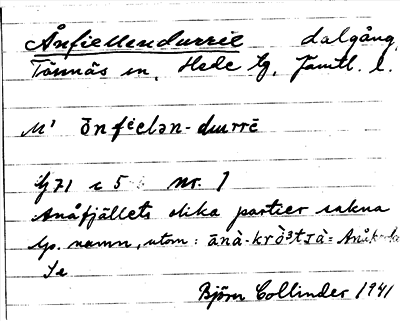 Ånfiellendurrie dalgång,
Tännäs sn, Hede tg, Jämtl. l.
M¹ ōnfi̯elən-durrē
Lj 71 c 5 nr. 1
Anåfjällets olika partier sakna
lp. namn, utom: ānà-krò³tsà =
Se
Björn Collinder 1941